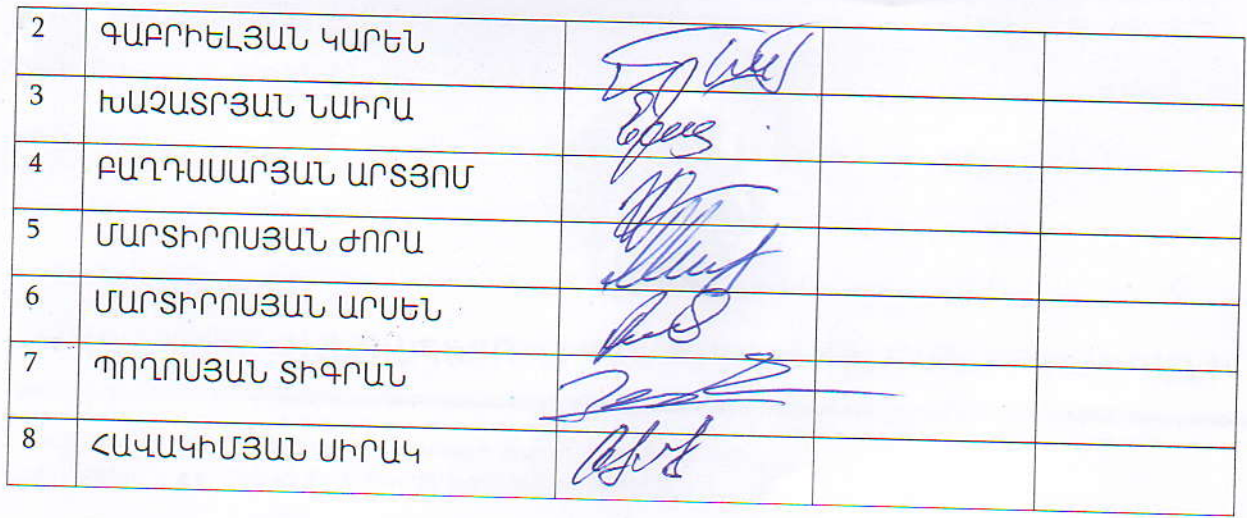 2 ԳԱԲՐԻԵԼՅԱՆ ԿԱՐԵՆ
3 ԽԱՉԱՏՐՅԱՆ ՆԱԻՐԱ
4 ԲԱՂԴԱՍԱՐՅԱՆ ԱՐՏՅՈՄ
5 ՄԱՐՏԻՐՈՍՅԱՆ ԺՈՐԱ
6 ՄԱՐՏԻՐՈՍՅԱՆ ԱՐՍԵՆ
7 ՊՈՂՈՍՅԱՆ ՏԻԳՐԱՆ
8 ՀԱՎԱԿԻՄՅԱՆ ՍԻՐԱԿ